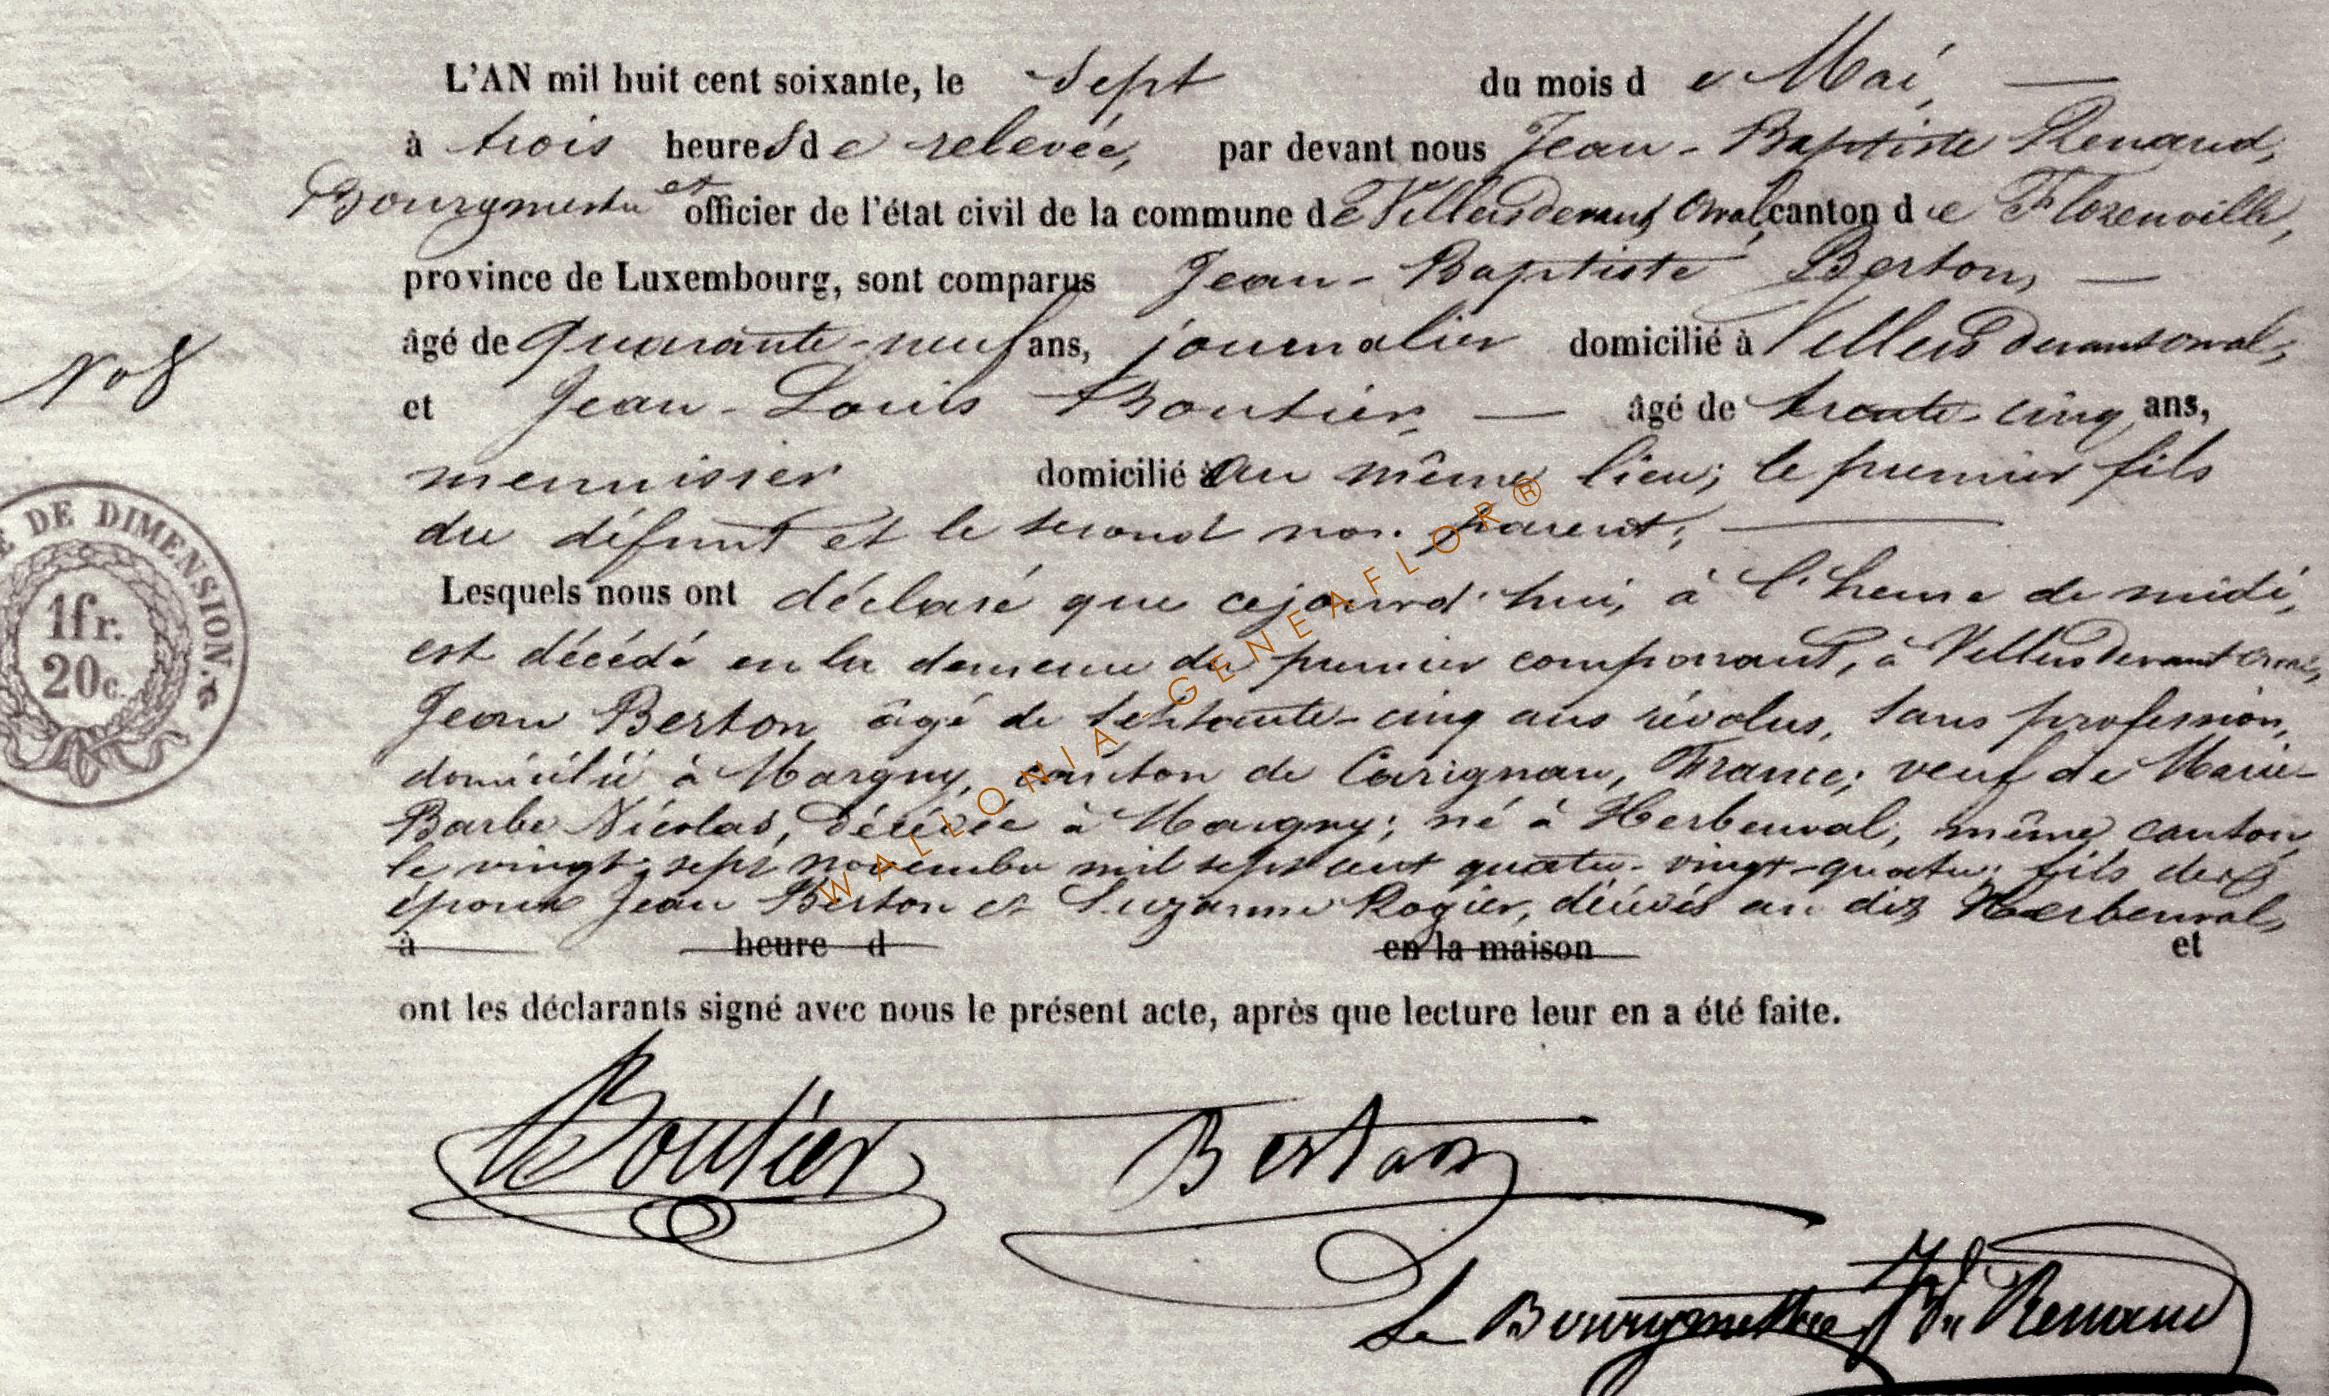 L'AN mil huit cent soixante, le sept du mois de Mai,
à trois heures de relevée, par devant nous Jean-Baptiste Renaud,
Bourgmestre et officier de l'état civil de la commune de Villersdevant Orval, canton de Florenville,
province de Luxembourg, sont comparus Jean-Baptiste Berton,
âgé de quarante-neuf ans, journalier domicilié à Villers devant orval,
et Jean-Louis Boutier, âgé de trente-cinq ans,
No 8
menuisier domicilié au même lieu; le premier fils
du défunt et le second non parent;
Lesquels nous ont déclaré que cejourd'hui, à l'heure de midi,
est décédé en la demeure du premier comparant, à Villers devant orval,
Jean Berton âgé de septante-cinq ans révolus, sans profession,
domicilié à Margny, canton de Carignan, France; veuf de Marie-
Barbe Nicolas, décédée à Margny; né à Herbeuval, même canton,
le vingt-sept novembre mil sept cent quatre-vingt-quatre; fils des
époux Jean Berton et Suzanne Rogier, décédés au dit Herbeuval,
à heure d en la maison et
ont les déclarants signé avec nous le présent acte, après que lecture leur en a été faite.
Boutier Berton
Le Bourgmestre Renaud
DE DIMENSION.
1fr.
20c.
WALLONIA-GENEAFLOR®